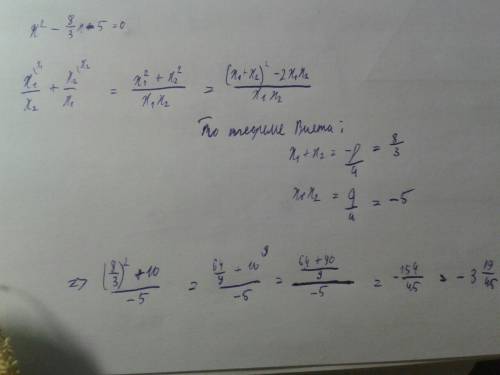 x² - 8/3 x - 5 = 0
x₁^(x₁)/x₂ + x₂^(x₂)/x₁ = (x₁² + x₂²)/(x₁x₂) = ((x₁ + x₂)² - 2x₁x₂)/(x₁x₂)
По теореме Виета:
x₁ + x₂ = -p/a = 8/3
x₁x₂ = q/a = -5
=> ((8/3)² + 10)/-5 = (64/9 + 10^9)/-5 = ((64 + 90)/9)/-5 = -154/45 = -3 19/45